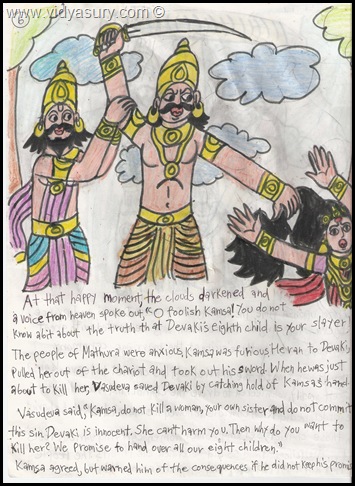 © www.vidyasury.com
6
At that happy moment, the clouds darkened and
a voice from heaven spoke out, "O foolish Kamsa! You do not
know abit about the truth that Devaki's eighth child is your slayer
The people of Mathura were anxious. Kamsa was furious He ran to Devaki,
pulled her out of the chariot and took out his sword. When he was just
about to kill her, Vasudeva saved Devaki by catching hold of Kamsa's hand.
Vasudeva said, "Kamsa, do not kill a woman, your own sister and do not commit
this sin. Devaki is innocent. She can't harm you. Then why do you want to
kill her? We promise to hand over all our eight children."
Kamsa agreed, but warned him of the consequences if he did not keep his promis